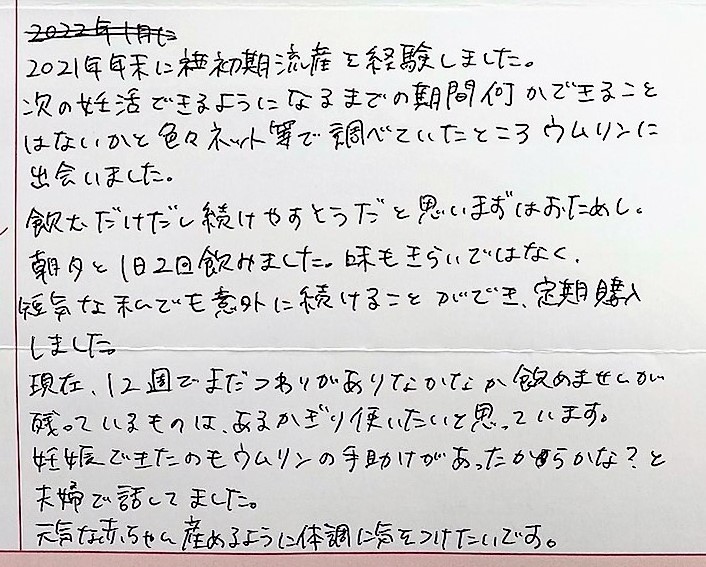 2022年1月に
2021年年末に極初期流産を経験しました。
次の妊活できるようになるまでの期間何かできること
はないかと色々ネット等で調べていたところウムリンに
出会いました。
飲むだけだし続けやすそうだと思いまずはおためし。
朝夕と1日2回飲みました。味もきらいではなく、
短気な私でも意外に続けることができ、定期購入
しました。
現在、12週でまだつわりがありなかなか飲めませんが
残っているものは、あるかぎり使いたいと思っています。
妊娠できたのもウムリンの手助けがあったからかな?と
夫婦で話してました。
元気な赤ちゃん産めるように体調に気をつけたいです。